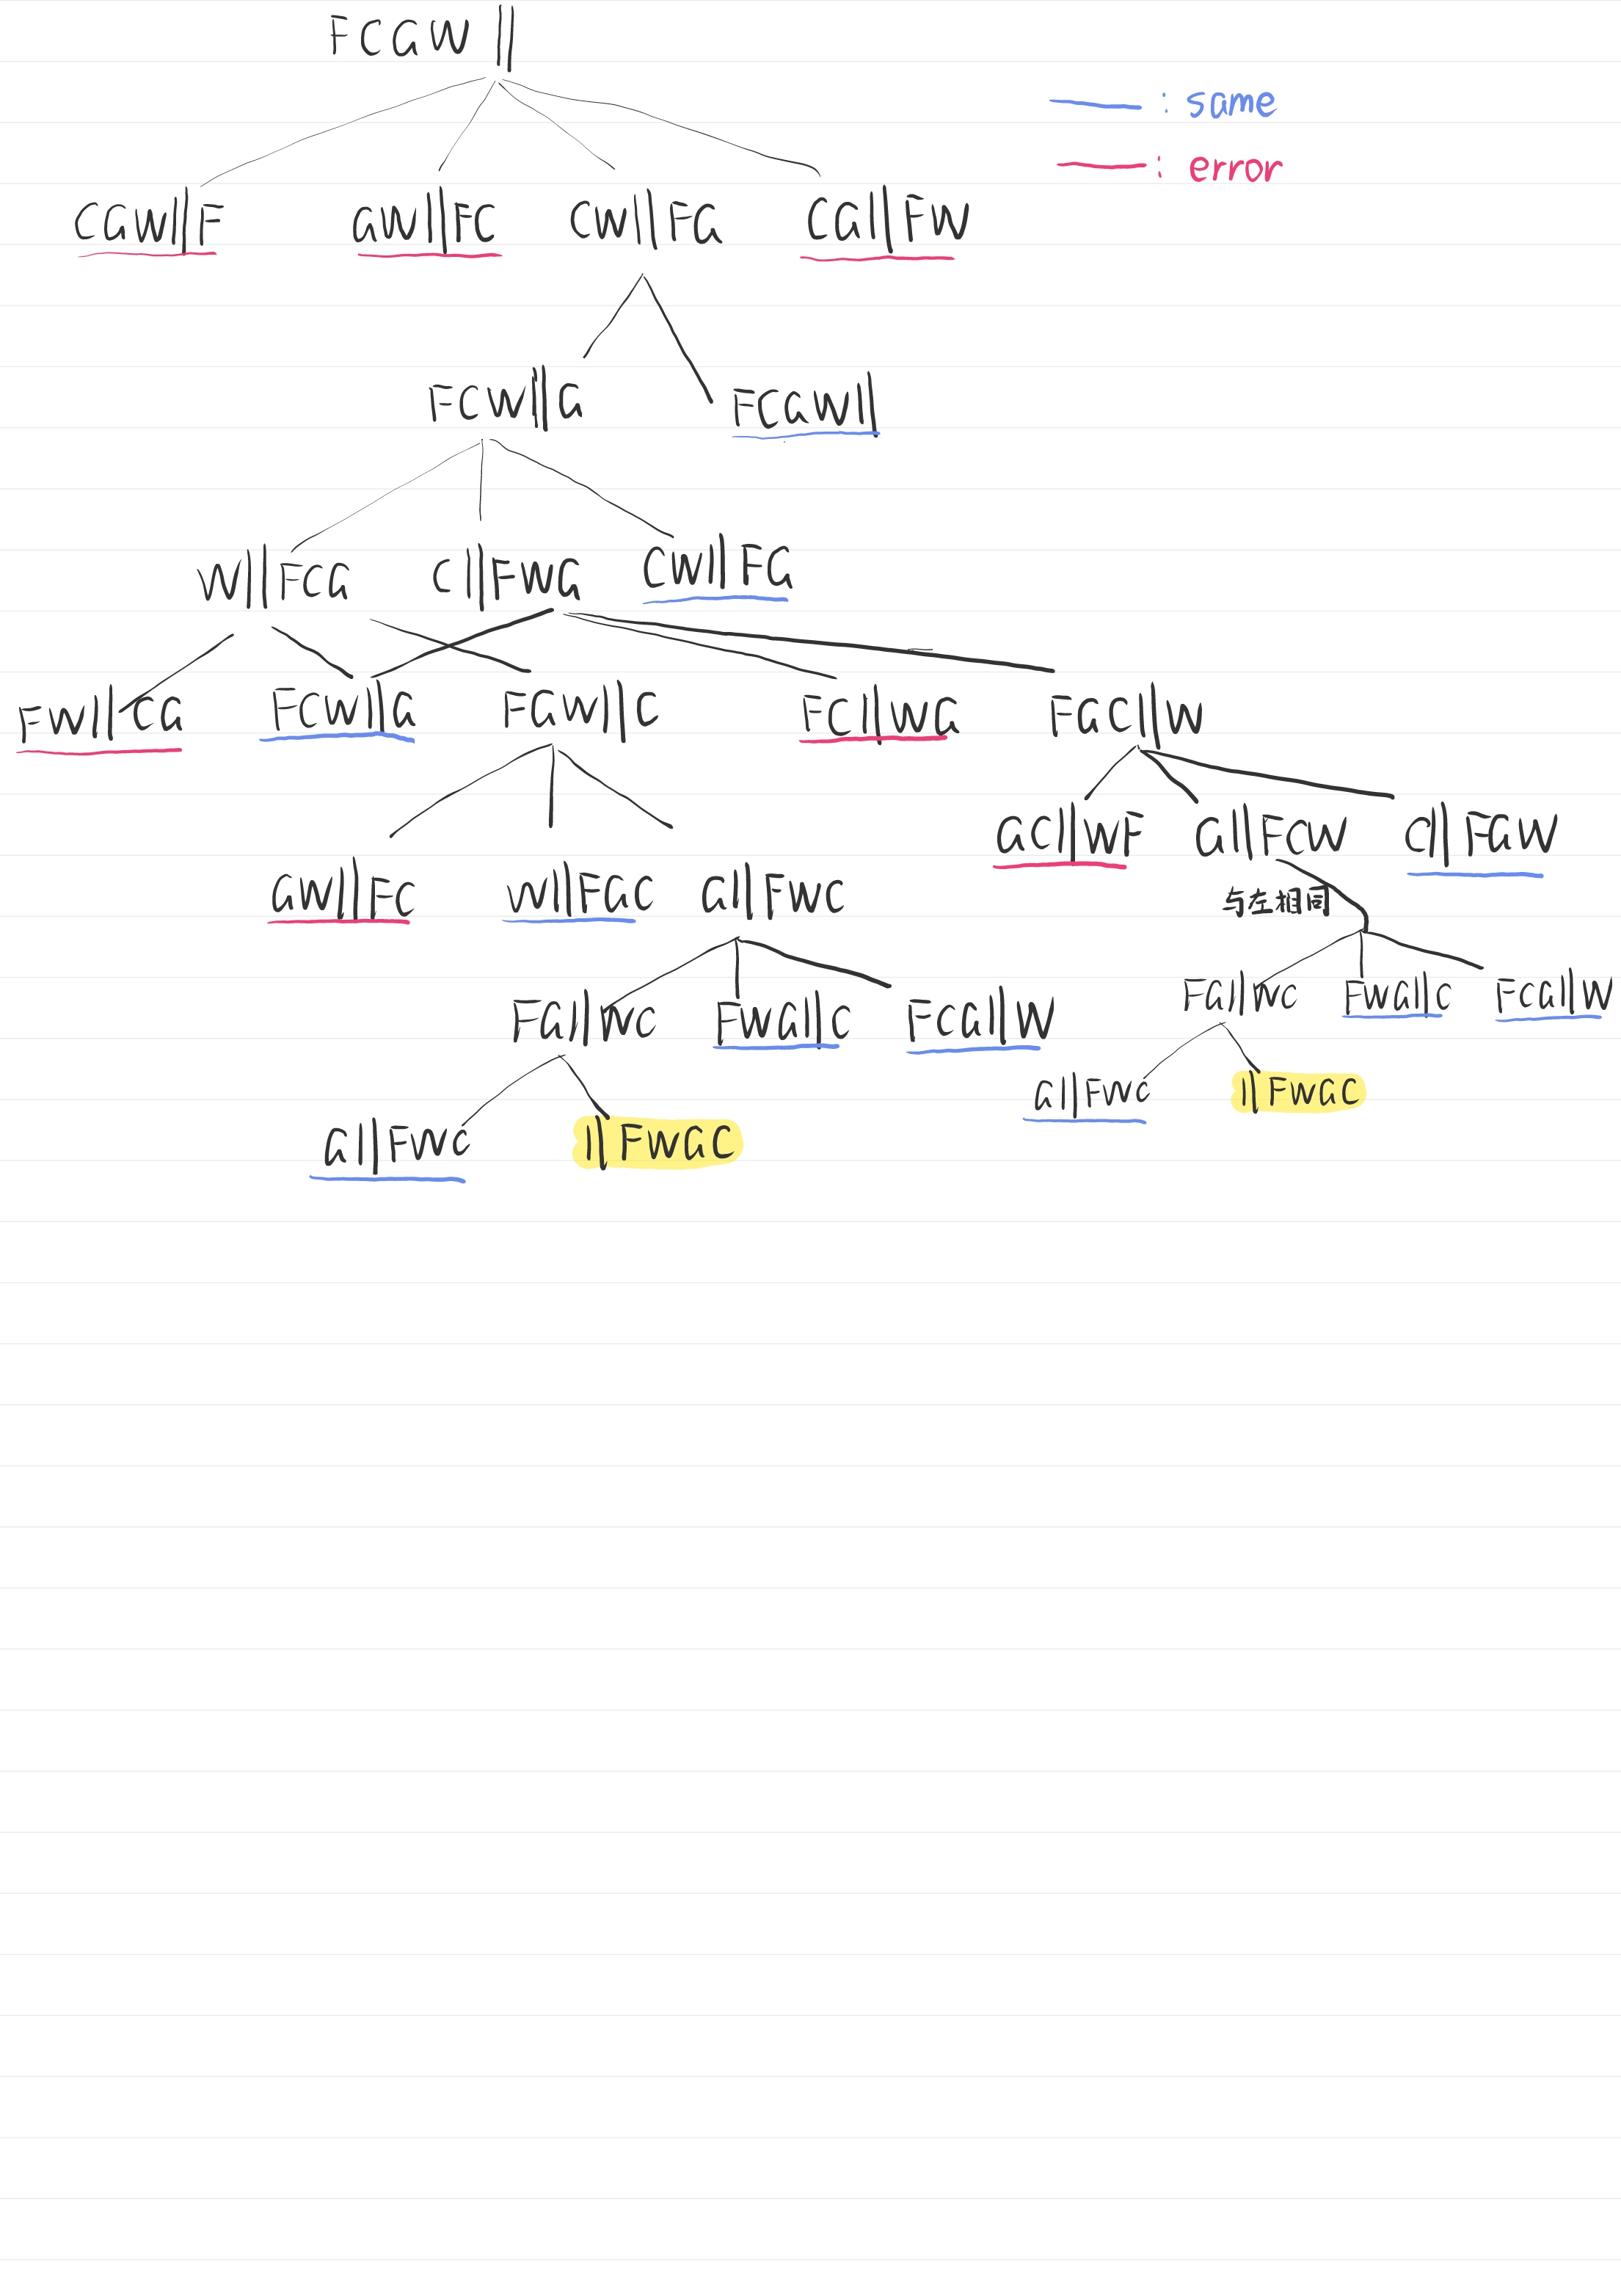 FCGW||
: same
: error
CGW||F GW||FC CW||FG CG||FW
FCW||G FCGW||
W||FCG C||FWG CW||FG
FW||CG FCW||G FGW||C FC||WG FGC||W
GC||WF G||FCW C||FGW
GW||FC W||FGC G||FWC 与左相同
FG||WC FWG||C FCG||W FG||WC FWG||C FCG||W
G||FWC ||FWGC G||FWC ||FWGC